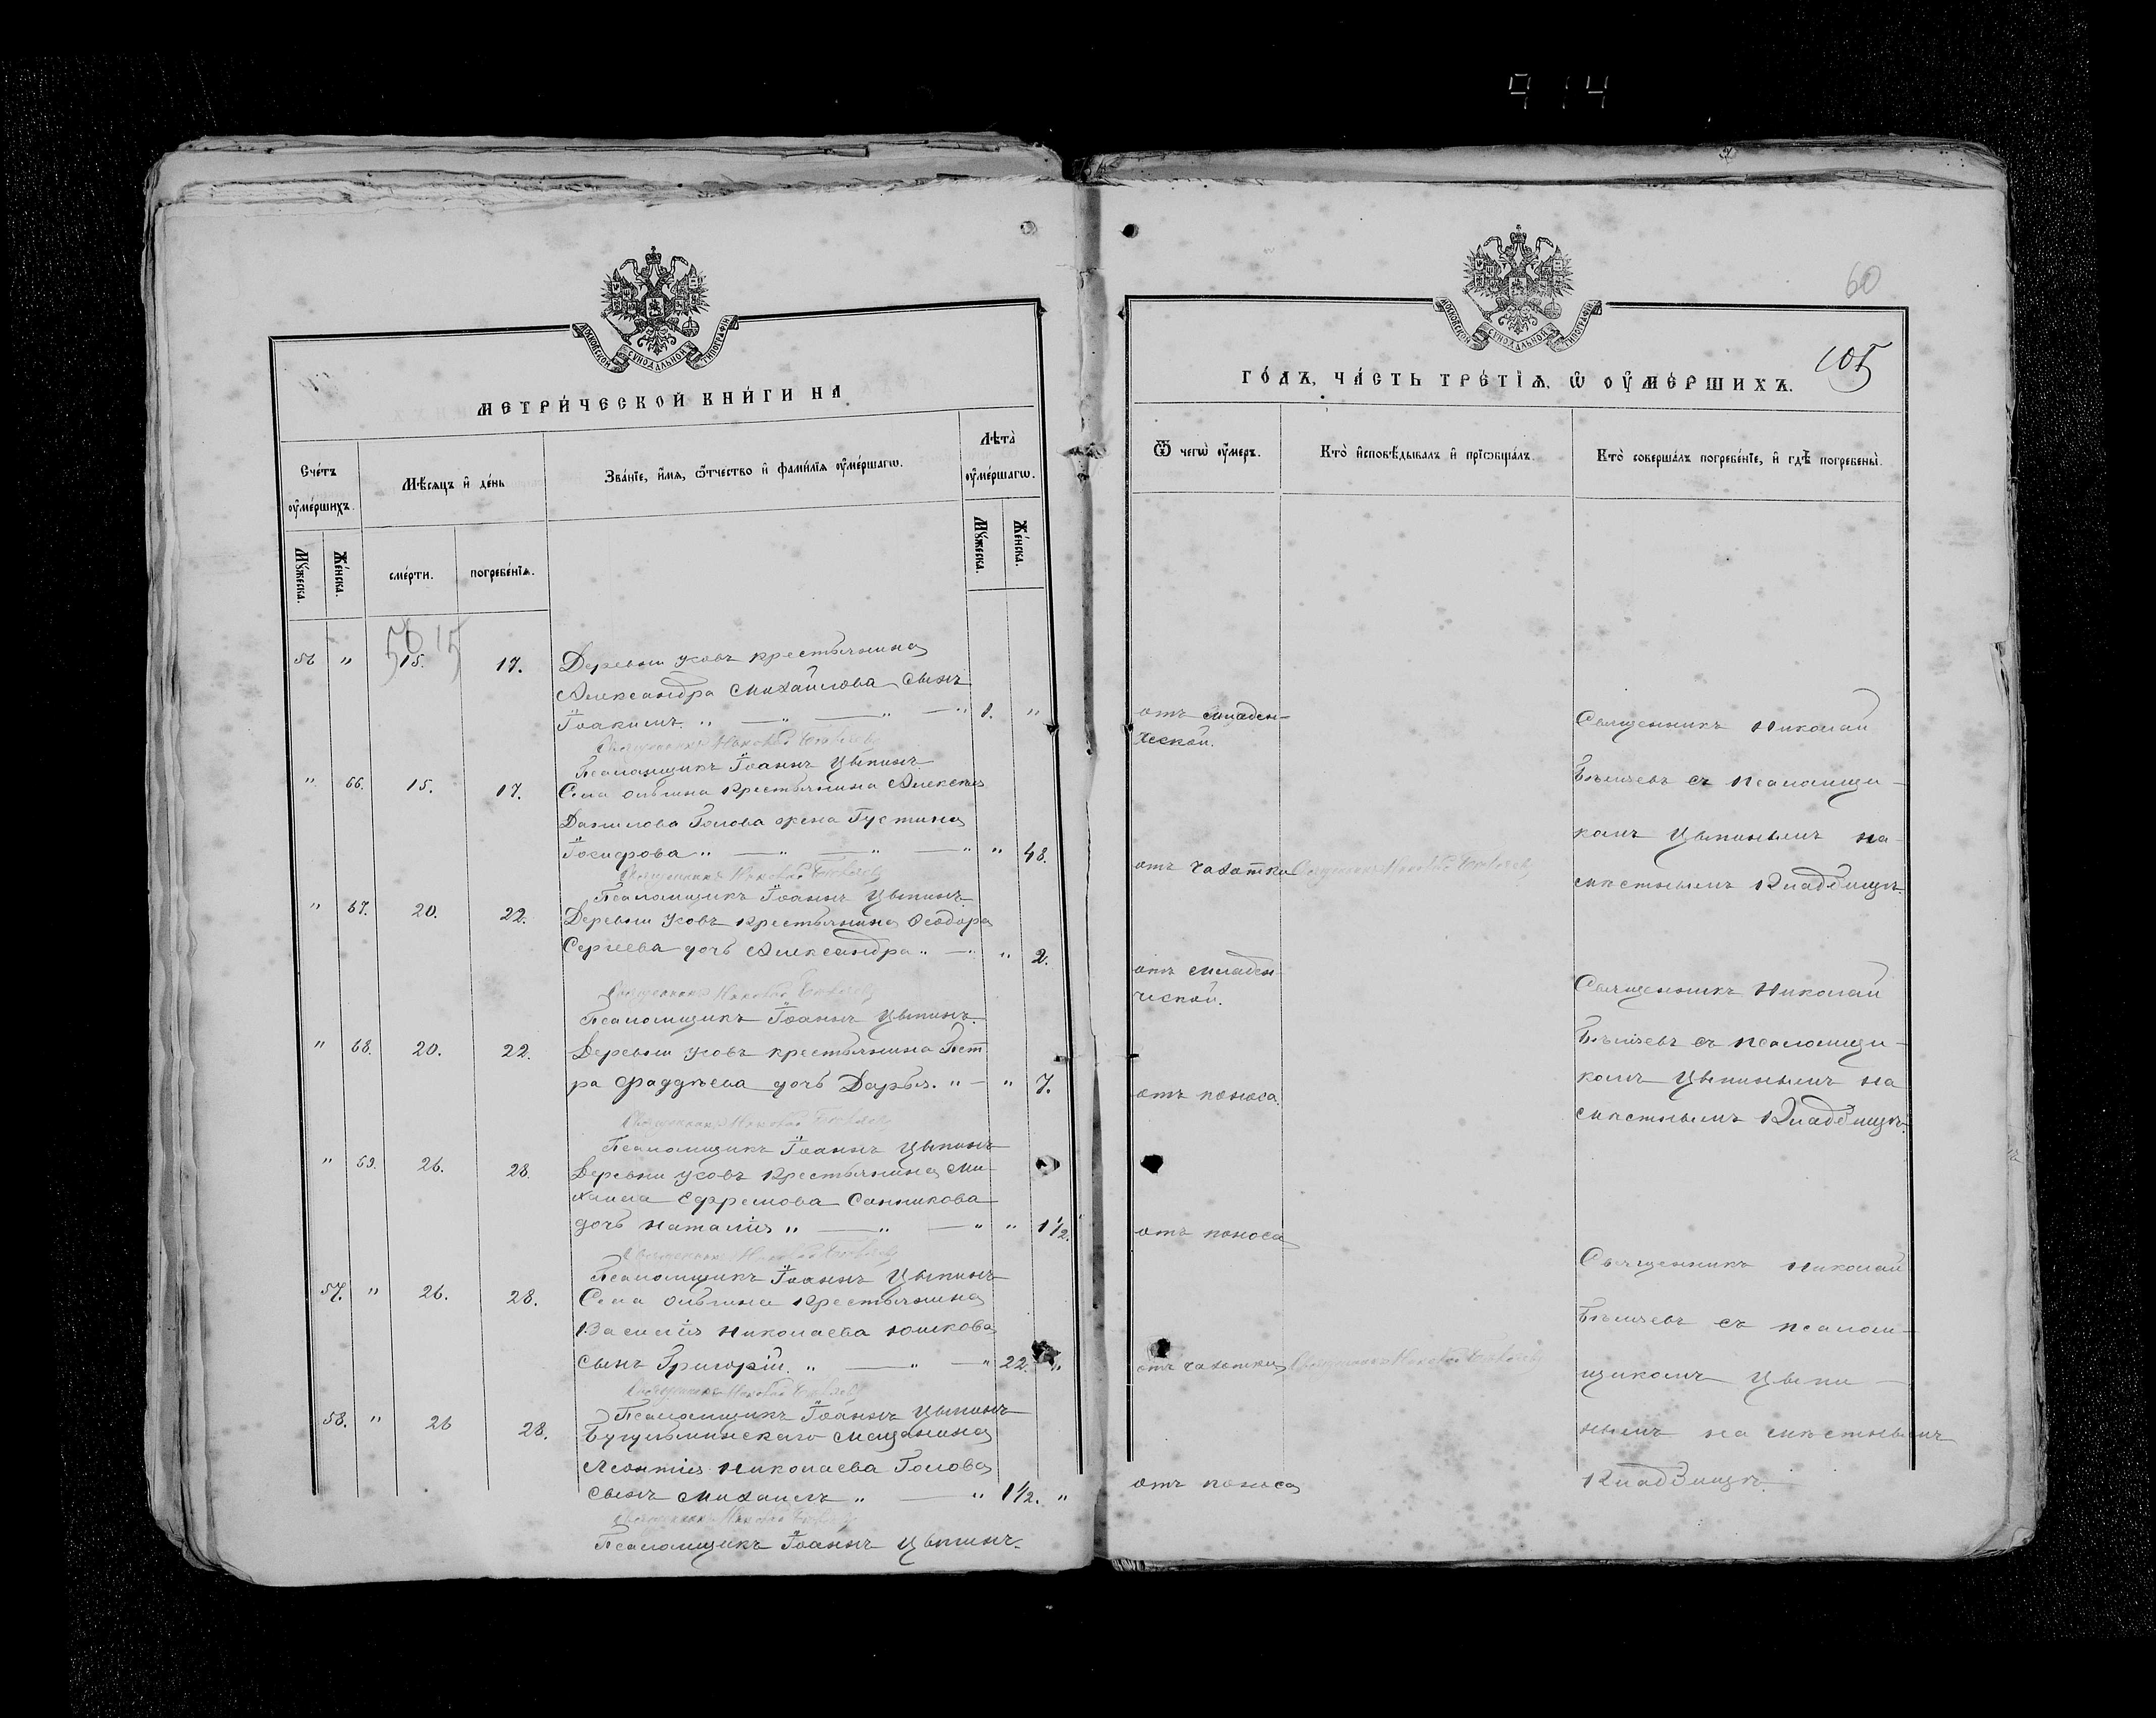 914
МОСКОВСКОЙ СѴНОДАЛЬНОЙ ТИПОГРАФІИ
МЕТРИ́ЧЕСКОЙ КНИ́ГИ НА
Сче́тъ ᲂу҆ме́ршихъ.
Мѣ́сяцъ и҆ де́нь
Зва́нїе, и҆́мя, ѻ҆́тчество и҆ фами́лїя ᲂу҆ме́ршагѡ.
Лѣта̀ ᲂу҆ме́ршагѡ.
Мꙋ́жеска.
Же́нска.
сме́рти.
погребе́нїя.
Мꙋ́жеска.
Же́нска.
56 15
56 " 15. 17. Деревни Усовъ крестьянина
Александра Михайлова сынъ
Іоакимъ. " — " — " — " 1. "
Священникъ Николай
Псаломщикъ Іоаннъ Цыпинъ.
" 66. 15. 17. Села Ольгина крестьянина Алексѣя
Данилова Голова жена Густина
Іосифова " — " — " — " " 48.
Священникъ Николай
Псаломщикъ Іоаннъ Цыпинъ.
" 67. 20. 22. Деревни Усовъ крестьянина Ѳеодора
Сергѣева дочь Александра " — " " 2.
Священникъ Николай
Псаломщикъ Іоаннъ Цыпинъ.
" 68. 20. 22. Деревни Усовъ крестьянина Пет
ра Фаддѣева дочь Дарья. " — " 7.
Священникъ Николай
Псаломщикъ Іоаннъ Цыпинъ
" 69. 26. 28. Деревни Усовъ крестьянина Ми-
хаила Ефремова Санникова
дочь Наталія " — " — " " 1½.
Священникъ Николай
Псаломщикъ Іоаннъ Цыпинъ
57. " 26. 28. Села Ольгина крестьянина
Василія Николаева Юшкова
сынъ Григорій. " — " — " 22. "
Священникъ Николай
Псаломщикъ Іоаннъ Цыпинъ
58. " 26 28. Бугульминскаго мещанина
Леонтія Николаева Голова
сынъ Михаилъ " — " 1½. "
Священникъ Николай
Псаломщикъ Іоаннъ Цыпинъ.
60
105
МОСКОВСКОЙ СѴНОДАЛЬНОЙ ТИПОГРАФІИ
ГО́ДЪ, ЧА́СТЬ ТРЕ́ТЇЯ, Ѡ҆ ОУ҆МЕ́РШИХЪ.
Ѿ чегѡ̀ ᲂу҆́меръ.
Кто̀ и҆сповѣ́дывалъ и҆ прїѡбща́лъ.
Кто̀ соверша́лъ погребе́нїе, и҆ гдѣ̀ погребены̀.
отъ младен-
ческой.
Священникъ Николай
съ псаломщи-
комъ Цыпинымъ на
мѣстномъ кладбищѣ.
отъ чахотки Священникъ Николай
отъ младен-
ческой.
Священникъ Николай
съ псаломщи-
комъ Цыпинымъ на
мѣстномъ кладбищѣ.
отъ поноса.
отъ поноса
Священникъ Николай
съ псалом-
щикомъ Цыпи-
нымъ на мѣстномъ
кладбищѣ.
отъ чахотки Священникъ Николай
отъ поноса